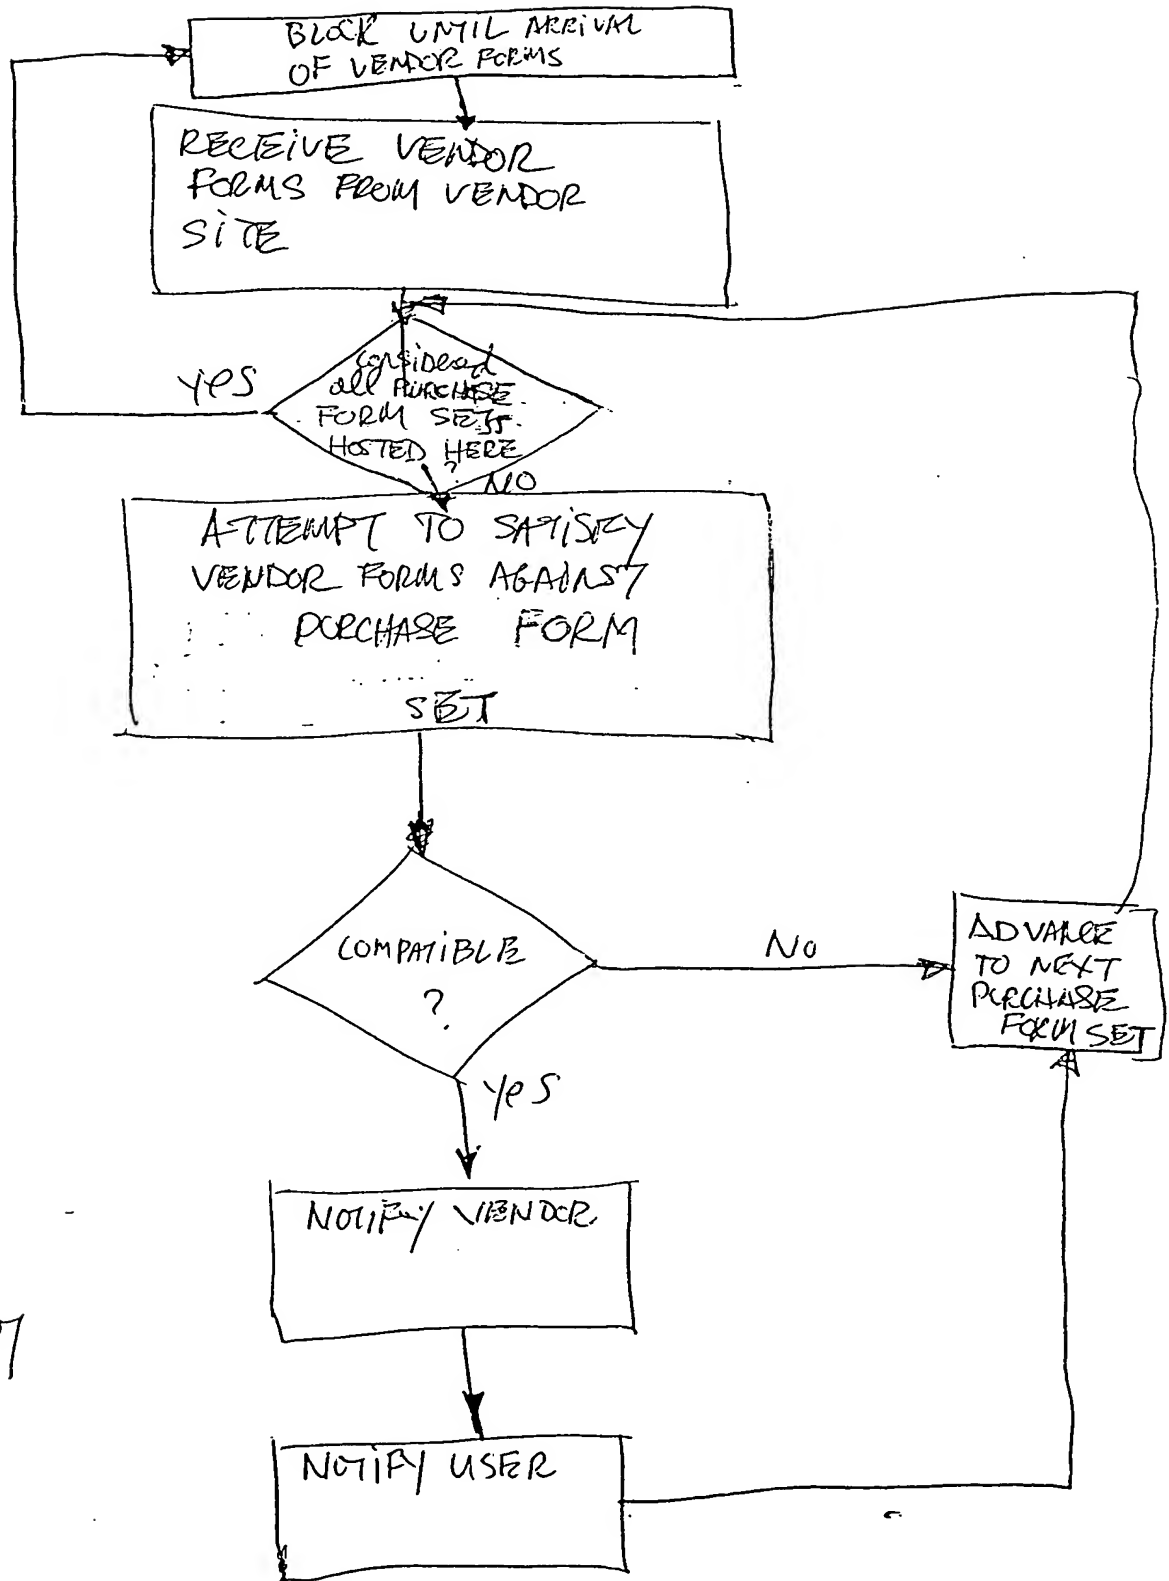 BLOCK UNTIL ARRIVAL
OF VENDOR FORMS
RECEIVE VENDOR
FORMS FROM VENDOR
SITE
considered
all PURCHASE
FORM SETS
HOSTED HERE
?
yes
NO
ATTEMPT TO SATISFY
VENDOR FORMS AGAINST
PURCHASE FORM
SET
COMPATIBLE
?
No
ADVANCE
TO NEXT
PURCHASE
FORM SET
yes
NOTIFY VENDOR
NOTIFY USER